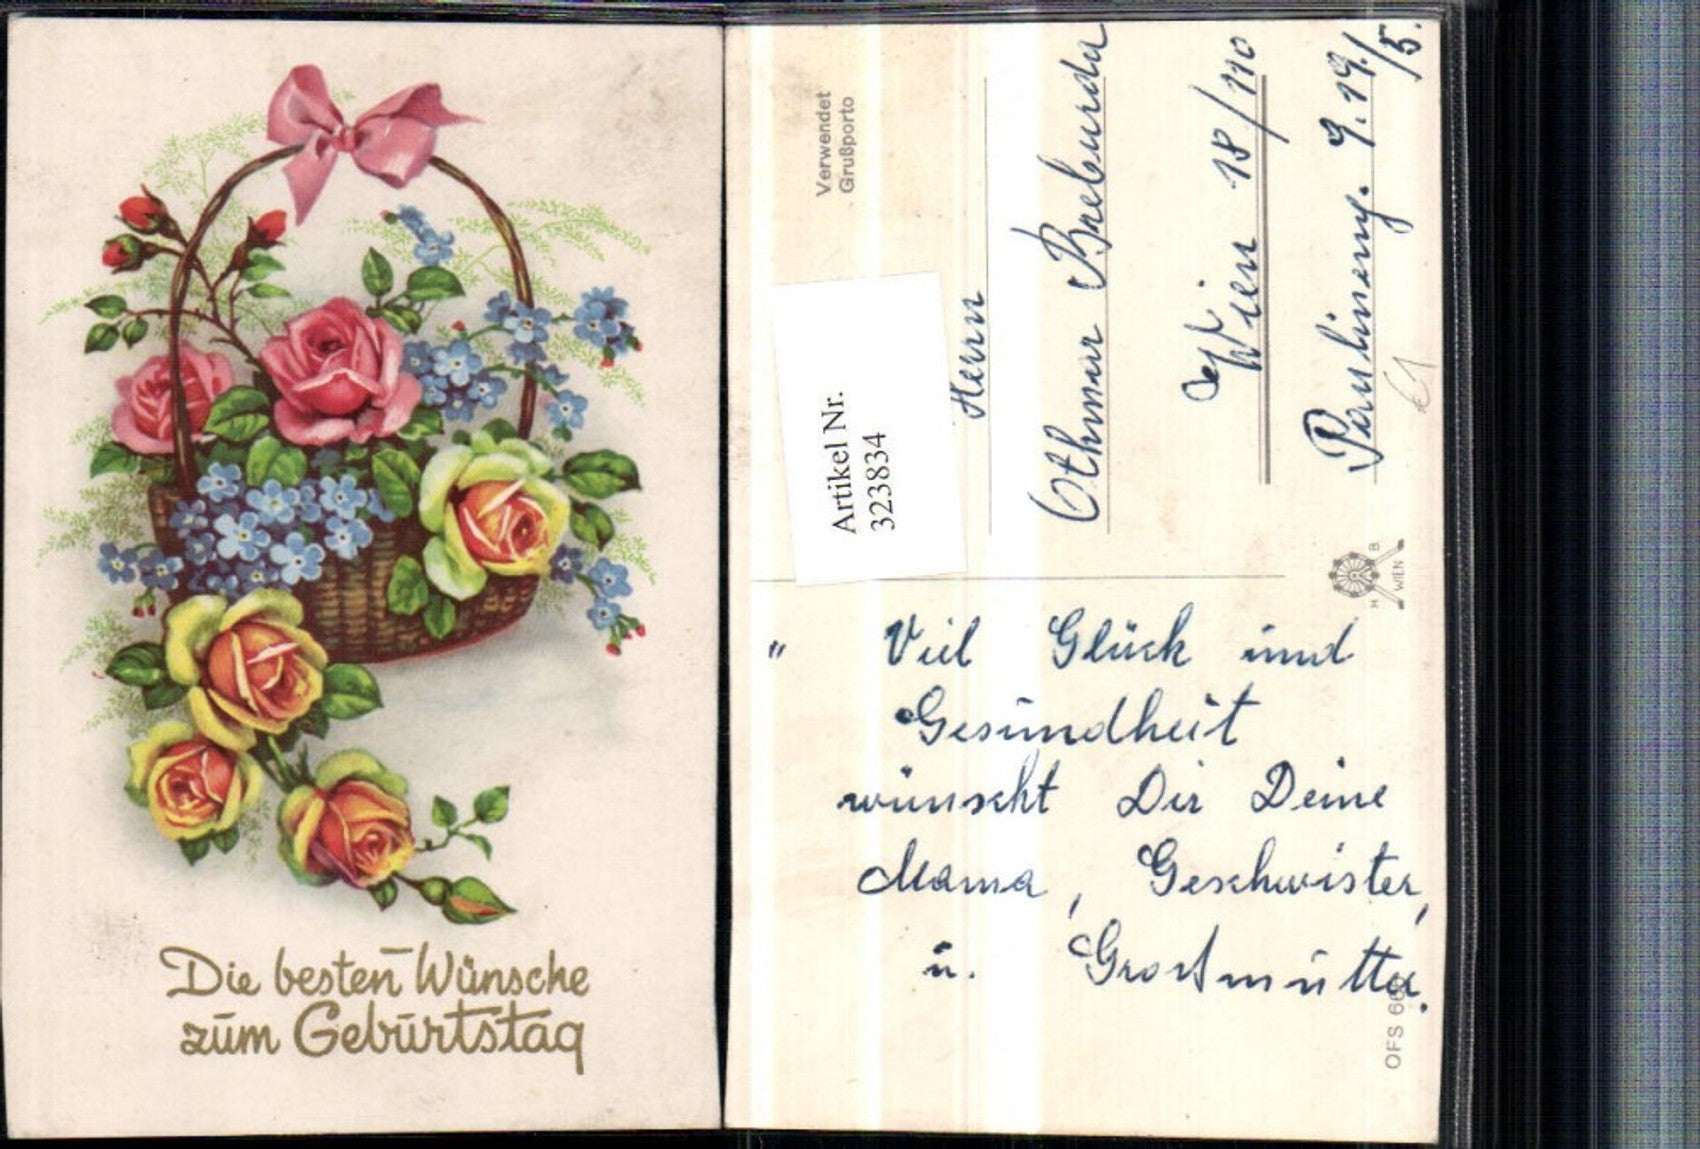 Die besten Wünsche
zum Geburtstag
Verwendet
Grußporto
Artikel Nr.
323834
Herrn
Othmar
Wien 18/110
9. 19./5.
H B
WIEN
" Viel Glück und
Gesundheit
wünscht Dir Deine
Mama, Geschwister,
u. Großmutter.
OFS